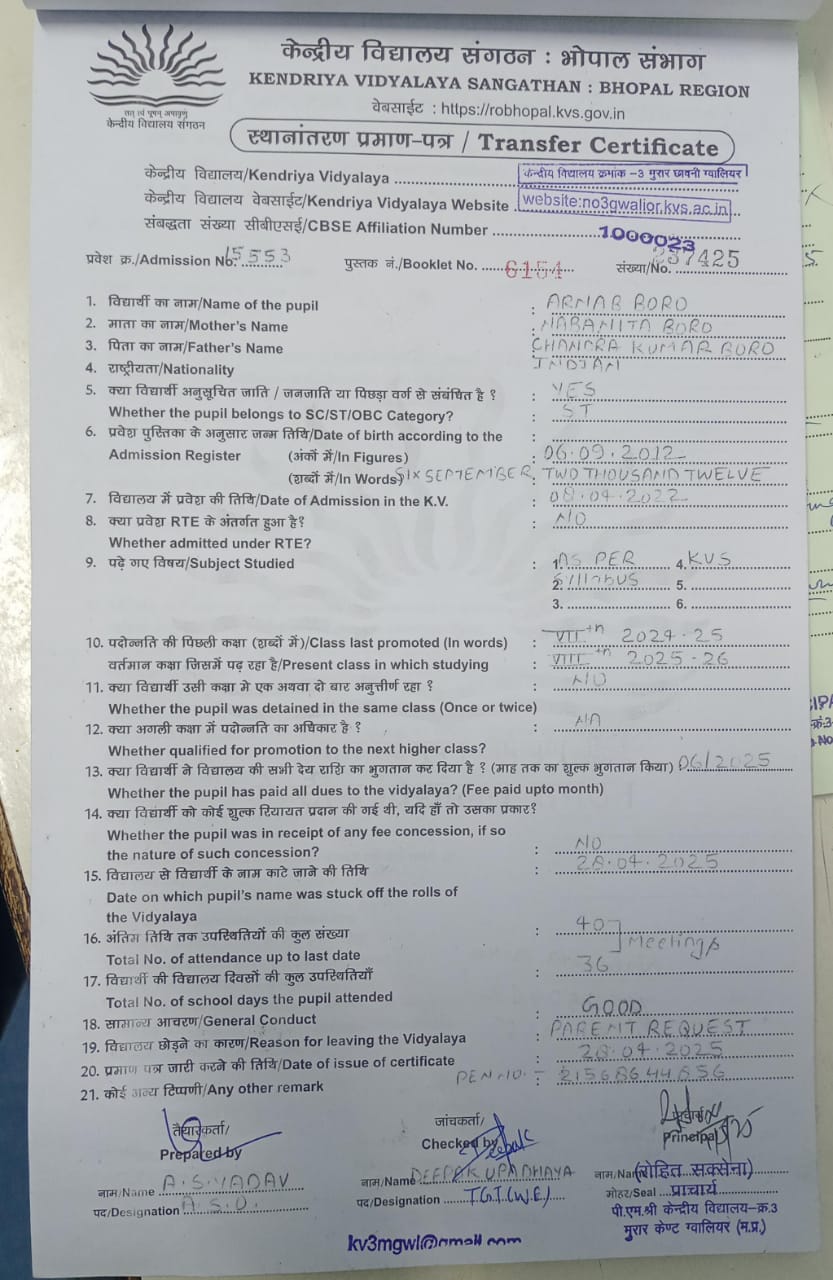 केन्द्रीय विद्यालय संगठन : भोपाल संभाग
KENDRIYA VIDYALAYA SANGATHAN : BHOPAL REGION
वेबसाईट : https://robhopal.kvs.gov.in
तत् त्वं पूषन् अपावृणु
केन्द्रीय विद्यालय संगठन
स्थानांतरण प्रमाण-पत्र / Transfer Certificate
केन्द्रीय विद्यालय/Kendriya Vidyalaya केन्द्रीय विद्यालय क्रमांक -3 मुरार छावनी ग्वालियर
केन्द्रीय विद्यालय वेबसाईट/Kendriya Vidyalaya Website website:no3gwalior.kvs.ac.in
संबद्धता संख्या सीबीएसई/CBSE Affiliation Number 1000023
प्रवेश क्र./Admission No. 15553 पुस्तक नं./Booklet No. 6154 संख्या/No. 237425
1. विद्यार्थी का नाम/Name of the pupil : ARNAB BORO
2. माता का नाम/Mother's Name : NABANITA BORO
3. पिता का नाम/Father's Name : CHANDRA KUMAR BORO
4. राष्ट्रीयता/Nationality INDIAN
5. क्या विद्यार्थी अनुसूचित जाति / जनजाति या पिछड़ा वर्ग से संबंधित है ? : YES
Whether the pupil belongs to SC/ST/OBC Category? : ST
6. प्रवेश पुस्तिका के अनुसार जन्म तिथि/Date of birth according to the :
Admission Register (अंकों में/In Figures) : 06.09.2012
(शब्दों में/In Words) SIX SEPTEMBER, TWO THOUSAND TWELVE
7. विद्यालय में प्रवेश की तिथि/Date of Admission in the K.V. : 08.04.2022
8. क्या प्रवेश RTE के अंतर्गत हुआ है? : NO
Whether admitted under RTE?
9. पढ़े गए विषय/Subject Studied : 1. AS PER 4. KVS
2. Syllabus 5.
3. 6.
10. पदोन्नति की पिछली कक्षा (शब्दों में)/Class last promoted (In words) : VII th 2024-25
वर्तमान कक्षा जिसमें पढ़ रहा है/Present class in which studying : VIII th 2025-26
11. क्या विद्यार्थी उसी कक्षा मे एक अथवा दो बार अनुत्तीर्ण रहा ? : NO
Whether the pupil was detained in the same class (Once or twice)
12. क्या अगली कक्षा में पदोन्नति का अधिकार है ? : NA
Whether qualified for promotion to the next higher class?
13. क्या विद्यार्थी ने विद्यालय की सभी देय राशि का भुगतान कर दिया है ? (माह तक का शुल्क भुगतान किया) 06/2025
Whether the pupil has paid all dues to the vidyalaya? (Fee paid upto month)
14. क्या विद्यार्थी को कोई शुल्क रियायत प्रदान की गई थी, यदि हाँ तो उसका प्रकार?
Whether the pupil was in receipt of any fee concession, if so
the nature of such concession? : NO
15. विद्यालय से विद्यार्थी के नाम काटे जाने की तिथि : 28.04.2025
Date on which pupil's name was stuck off the rolls of
the Vidyalaya
16. अंतिम तिथि तक उपस्थितियों की कुल संख्या : 40
Total No. of attendance up to last date Meetings
17. विद्यार्थी की विद्यालय दिवसों की कुल उपस्थितियाँ : 36
Total No. of school days the pupil attended
18. सामान्य आचरण/General Conduct : GOOD
19. विद्यालय छोड़ने का कारण/Reason for leaving the Vidyalaya : PARENT REQUEST
20. प्रमाण पत्र जारी करने की तिथि/Date of issue of certificate : 28.04.2025
21. कोई अन्य टिप्पणी/Any other remark PEN NO. - 21568644656
तैयारकर्ता/ जांचकर्ता/
Prepared by Checked by Principal
नाम/Name A.S. YADAV नाम/Name DEEPAK UPADHAYA नाम/Name (रोहित सक्सेना)
पद/Designation A.S.O. पद/Designation TGT (W.E) मोहर/Seal प्राचार्य
पी.एम.श्री केन्द्रीय विद्यालय-क्र.3
मुरार केण्ट ग्वालियर (म.प्र.)
kv3mgwl@gmail.com